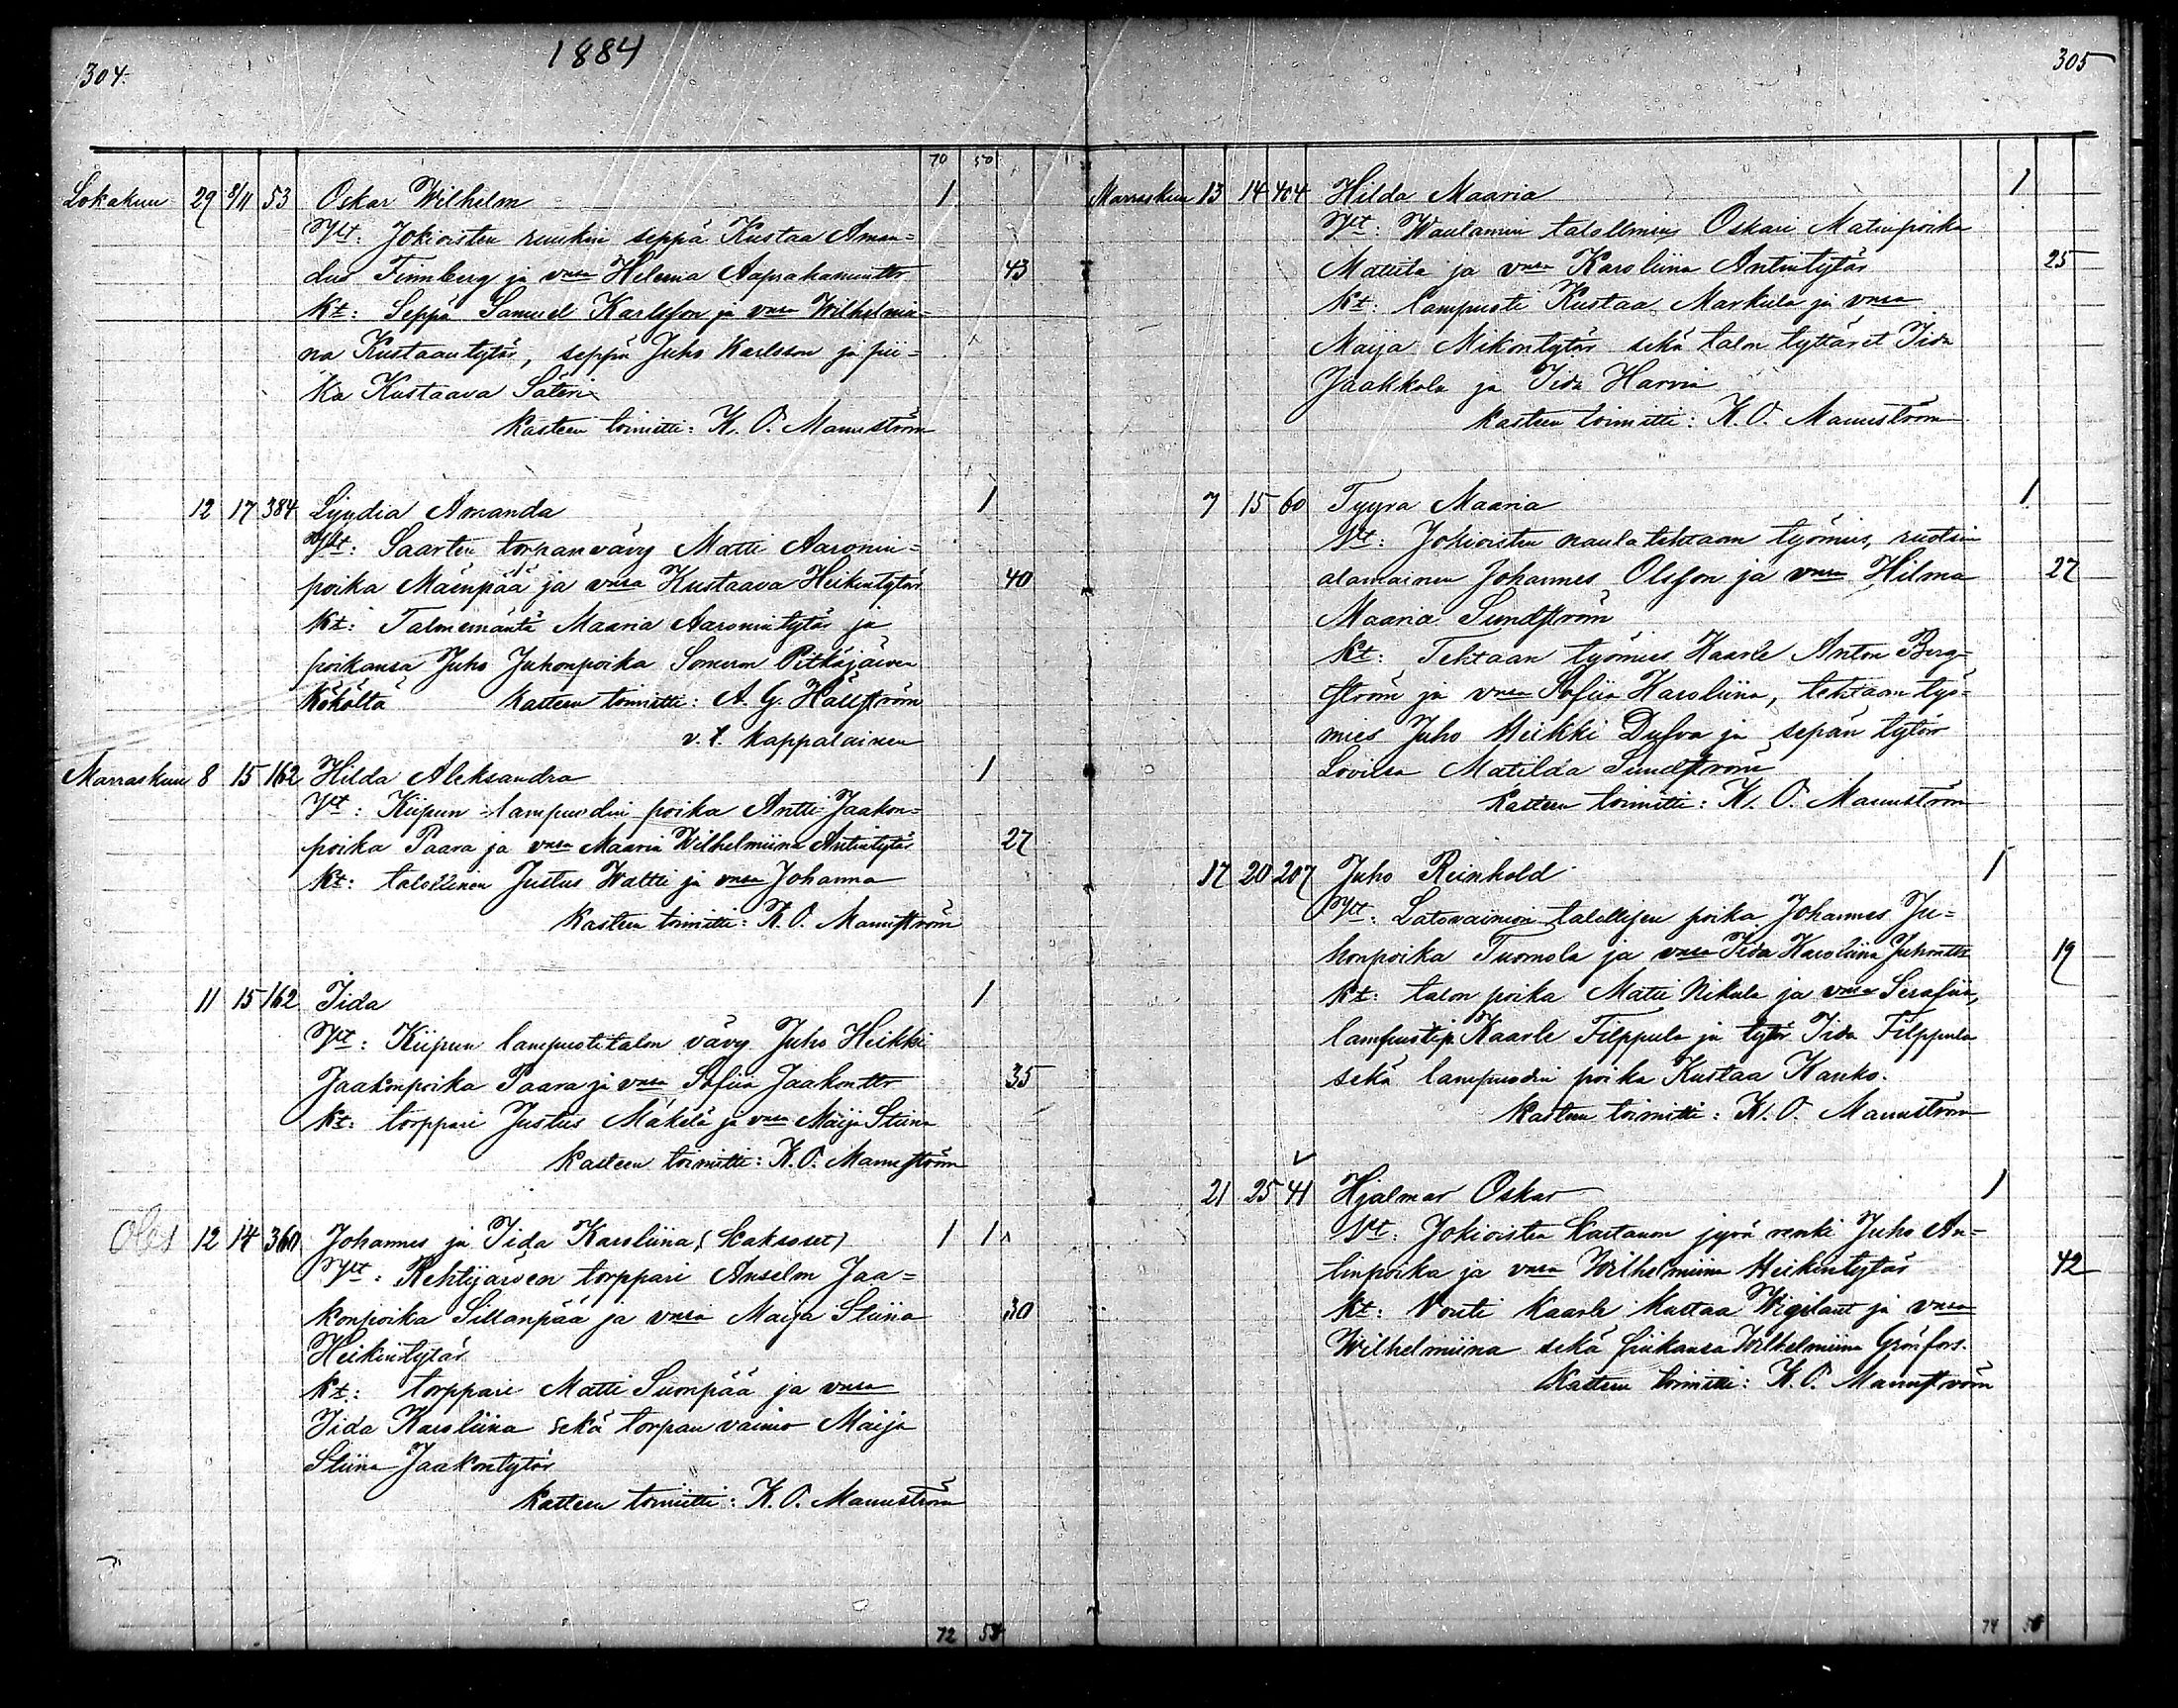 304.
1884
70 50
Lokakuu 29 8/11 53 Oskar Wilhelm 1
Vt: Jokioisten ruukin seppä Kustaa Aman=
dus Finnberg ja vmsa Helena Aaprahamintr 43
Kt: Seppä Samuel Karlsson ja vmsa Wilhelmii=
na Kustaantytär, seppä Juho Karlsson ja pii=
ka Kustaava Säteri
Kasteen toimitti: K. O. Mannström
12 17 384 Lyydia Amanda 1
Vt: Saarten torpanvävy Matti Aaronin=
poika Mäenpää ja vmsa Kustaava Heikintytär 40
Kt: Maaria Aaronintytär ja
poikansa Juho Juhonpoika Someron Pitkäjärven
Kasteen toimitti: A. G. Hällström
v. t. kappalainen
Marraskuu 8 15 162 Hilda Aleksandra 1
Vt: Kiipun lampuodin poika Antti Jaakon=
poika Paara ja vmsa Maaria Wilhelmiina Antintytär 27
Kt: talollinen Justus Waltti ja vmsa Johanna
Kasteen toimitti: K. O. Mannström
11 15 162 Iida 1
Vt: Kiipun lampuotitalon vävy Juho Heikki
Jaakonpoika Paara ja vmsa Sofiia Jaakontr 35
Kt: torppari Justus Mäkelä ja vmsa Maija Stiina
Kasteen toimitti: K. O. Mannström
12 14 360 Johannes ja Iida Karoliina (kaksoset) 1 1
Vt: Rehtijärven torppari Anselm Jaa=
konpoika Sillanpää ja vmsa Maija Stiina 30
Heikintytär
Kt: torppari Matti Suonpää ja vmsa
Iida Karoliina sekä torpan vaimo Maija
Stiina Jaakontytär
Kasteen toimitti: K. O. Mannström
72
305
Marraskuu 13 14 404 Hilda Maaria 1
Vt: Waulamin talollinen Oskari Matinpoika
Mattila ja vmsa Karoliina Antintytär 25
Kt: lampuoti Kustaa Markula ja vmsa
Maija Mikontytär sekä talon tyttäret Iida
Jaakkola ja Iida Harvia
Kasteen toimitti: K. O. Mannström
7 15 60 Tyyra Maaria 1
Vt: Jokioisten naulatehtaan työmies, ruotsin
alamainen Johannes Olsson ja vmsa Hilma 27
Maaria Sundström
Kt: Tehtaan työmies Kaarle Anton Berg=
ström ja vmsa Sofiia Karoliina, tehtaan työ=
mies Juho Heikki Dufva ja sepän tytär
Loviisa Matilda Sundström
Kasteen toimitti: K. O. Mannström
17 20 207 Juho Reinhold 1
Vt: Latovainion talollisen poika Johannes Ju=
honpoika Tuomola ja vmsa Iida Karoliina Juhontr 19
Kt: talon poika Matti Nikula ja vmsa Serafiia,
lampuotip Kaarle Filppula ja tytär Iida Filppula
sekä lampuodin poika Kustaa Kanko.
Kasteen toimitti: K. O. Mannström
21 25 41 Hjalmar Oskar 1
Vt: Jokioisten kartanon jyvä renki Juho An=
tinpoika ja vmsa Wilhelmiina Heikintytär 42
Kt: Vouti Kaarle Kustaa Wigilant ja vmsa
Wilhelmiina sekä piikansa Wilhelmiina Grönfors.
Kasteen toimitti: K. O. Mannström
74